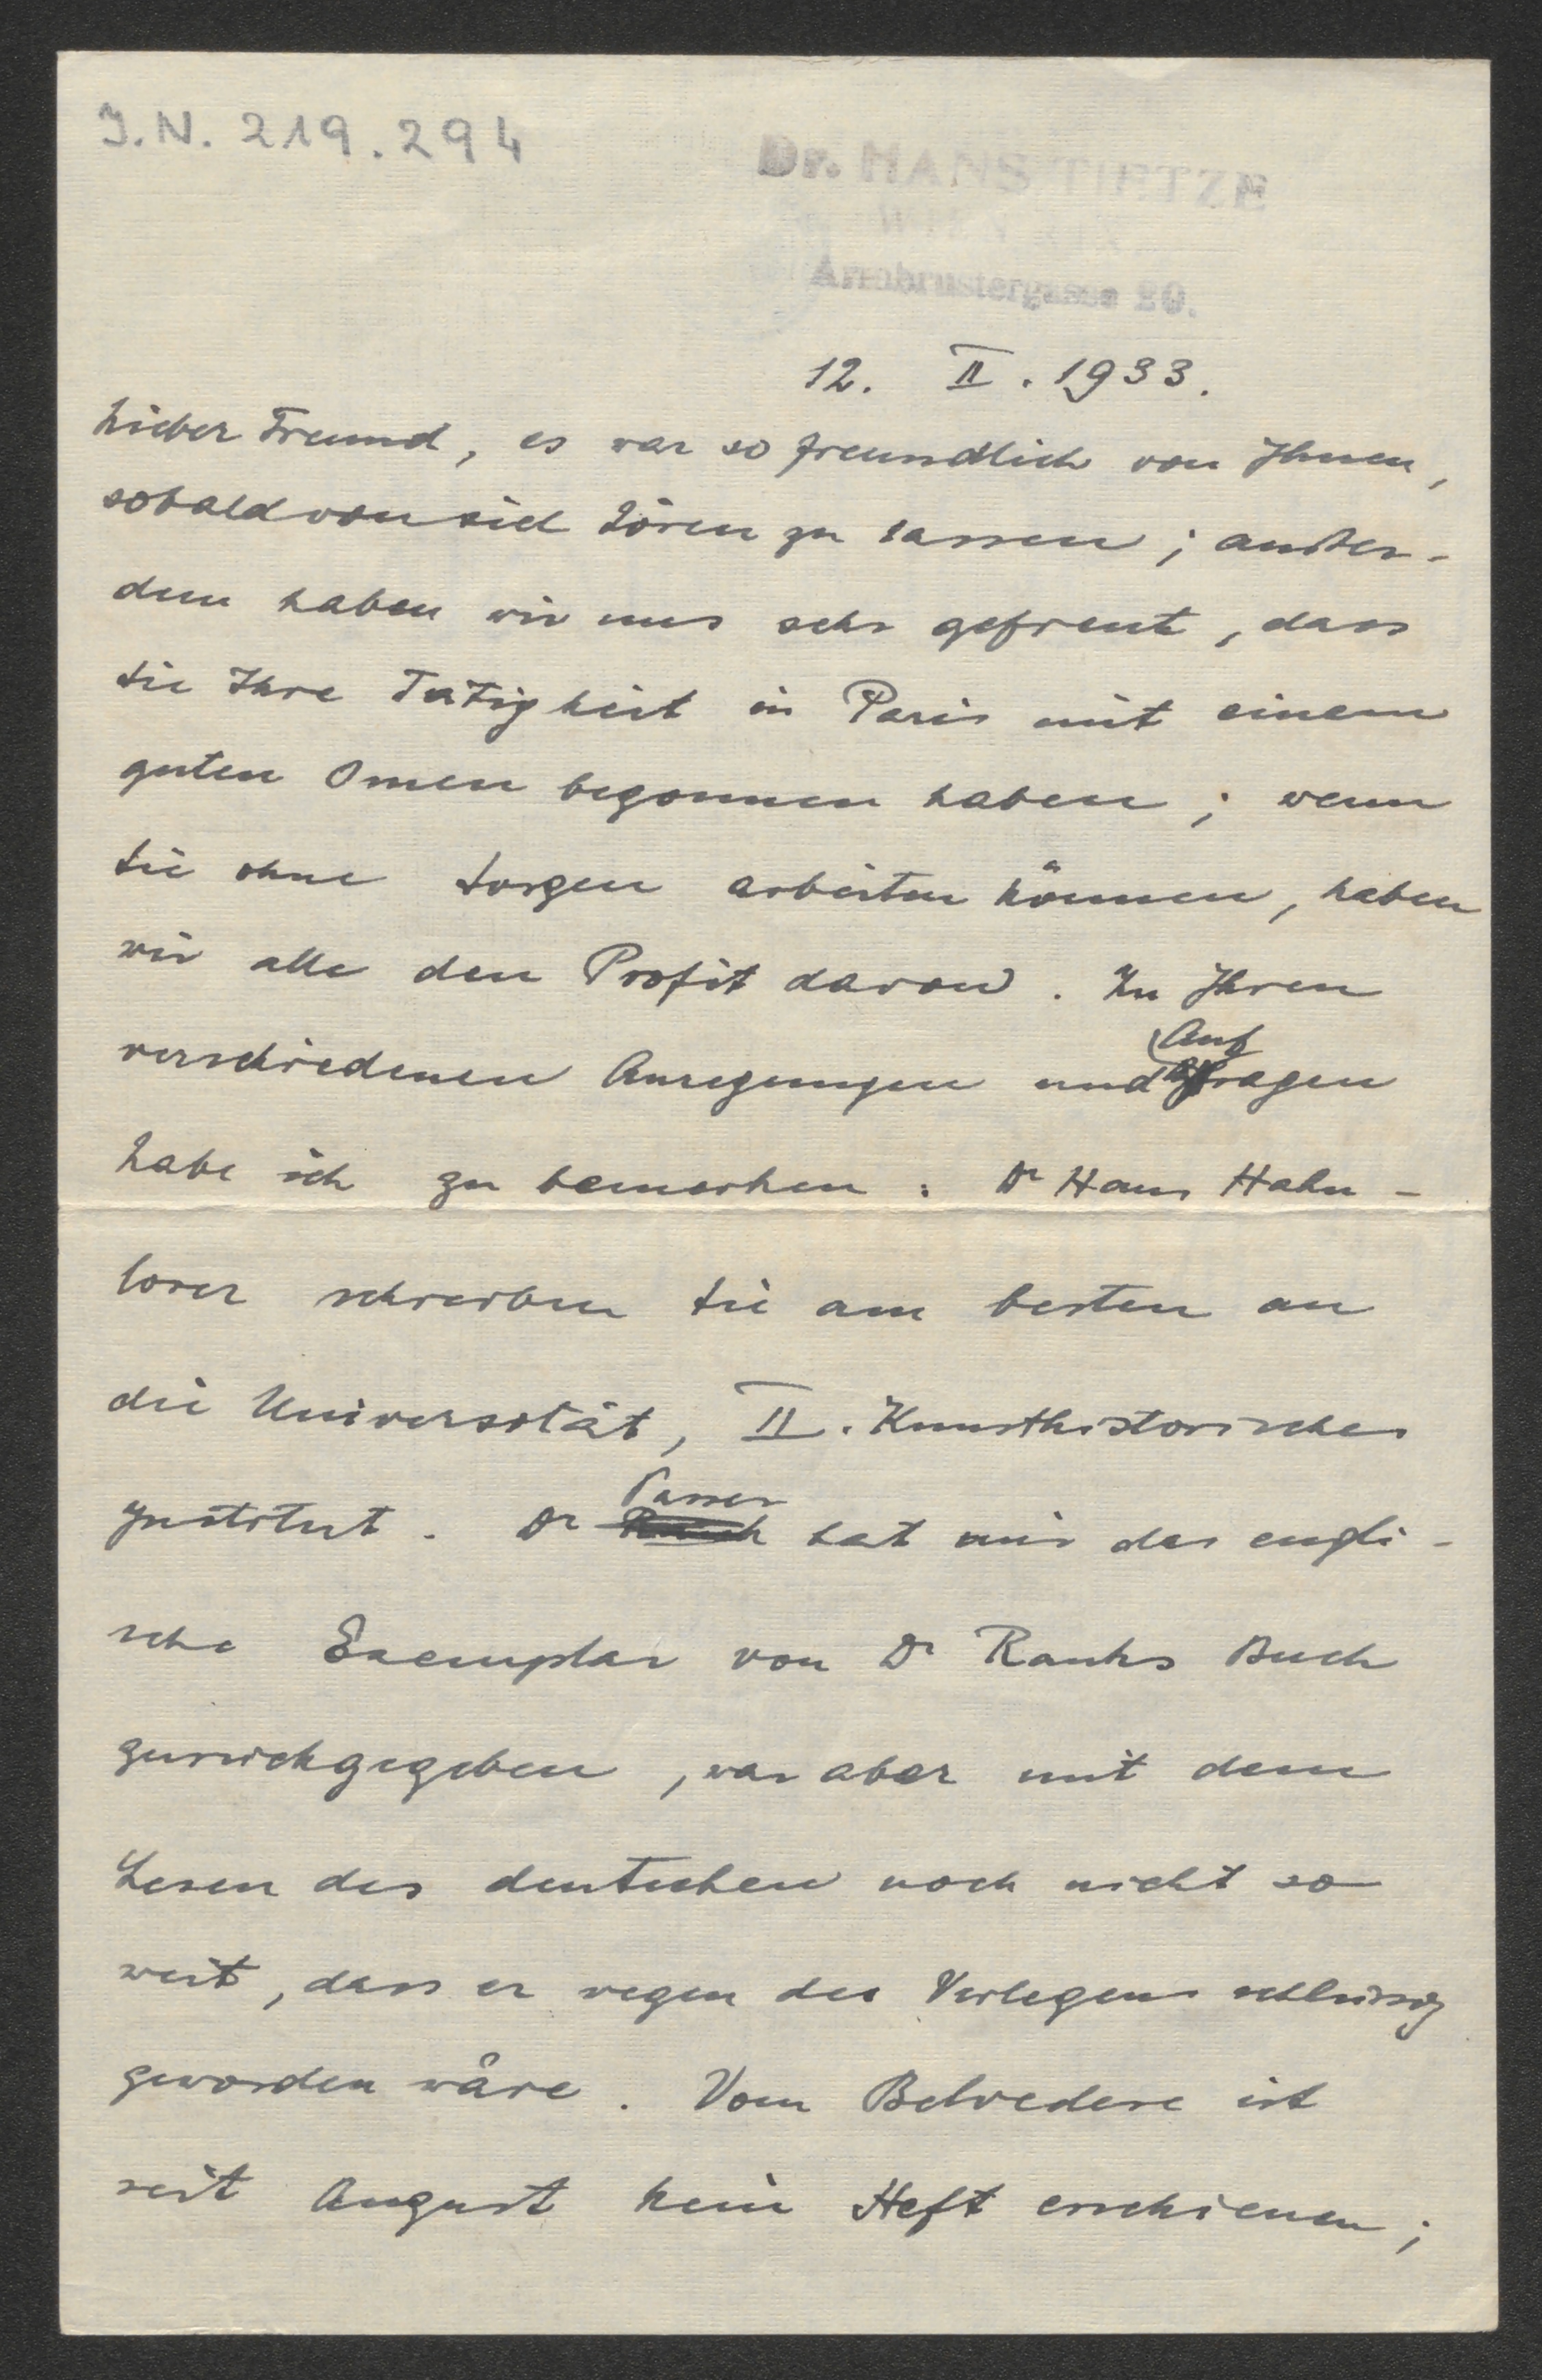 J.N. 219.294
Dr. HANS TIETZE
WIEN XIX
Armbrustergasse 20.
12. II. 1933.
Lieber Freund, es war so freundlich von Ihnen,
sobald von sich hören zu lassen; ausser-
dem haben wir uns sehr gefreut, dass
Sie Ihre Tätigkeit in Paris mit einem
guten Omen begonnen haben; wenn
Sie ohne Sorgen arbeiten können, haben
wir alle den Profit davon. Zu Ihren
verschiedenen Anregungen und Anfragen
habe ich zu bemerken: Dr Hans Hahn-
loser schreiben Sie am besten an
die Universität, II. Kunsthistorisches
Institut. Dr Passer hat mir das engli-
sche Exemplar von Dr Ranks Buch
zurückgegeben, war aber mit dem
Lesen des deutschen noch nicht so
weit, dass er wegen des Verlegens schlüssig
geworden wäre. Vom Belvedere ist
seit August kein Heft erschienen;